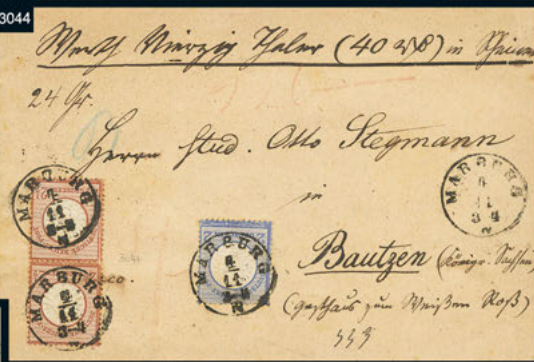 3044
Werth Vierzig Thaler (40 rß) in Scheinen
24 Gr.
Herrn Stud. Otto Stegmann
in
Bautzen (Königr. Sachsen)
(Gasthaus zum Weißen Roß)
franco.
MARBURG
11
3-4
N
MARBURG
11
3-4
N
MARBURG
11
3-4
N
MARBURG
11
3-4
N